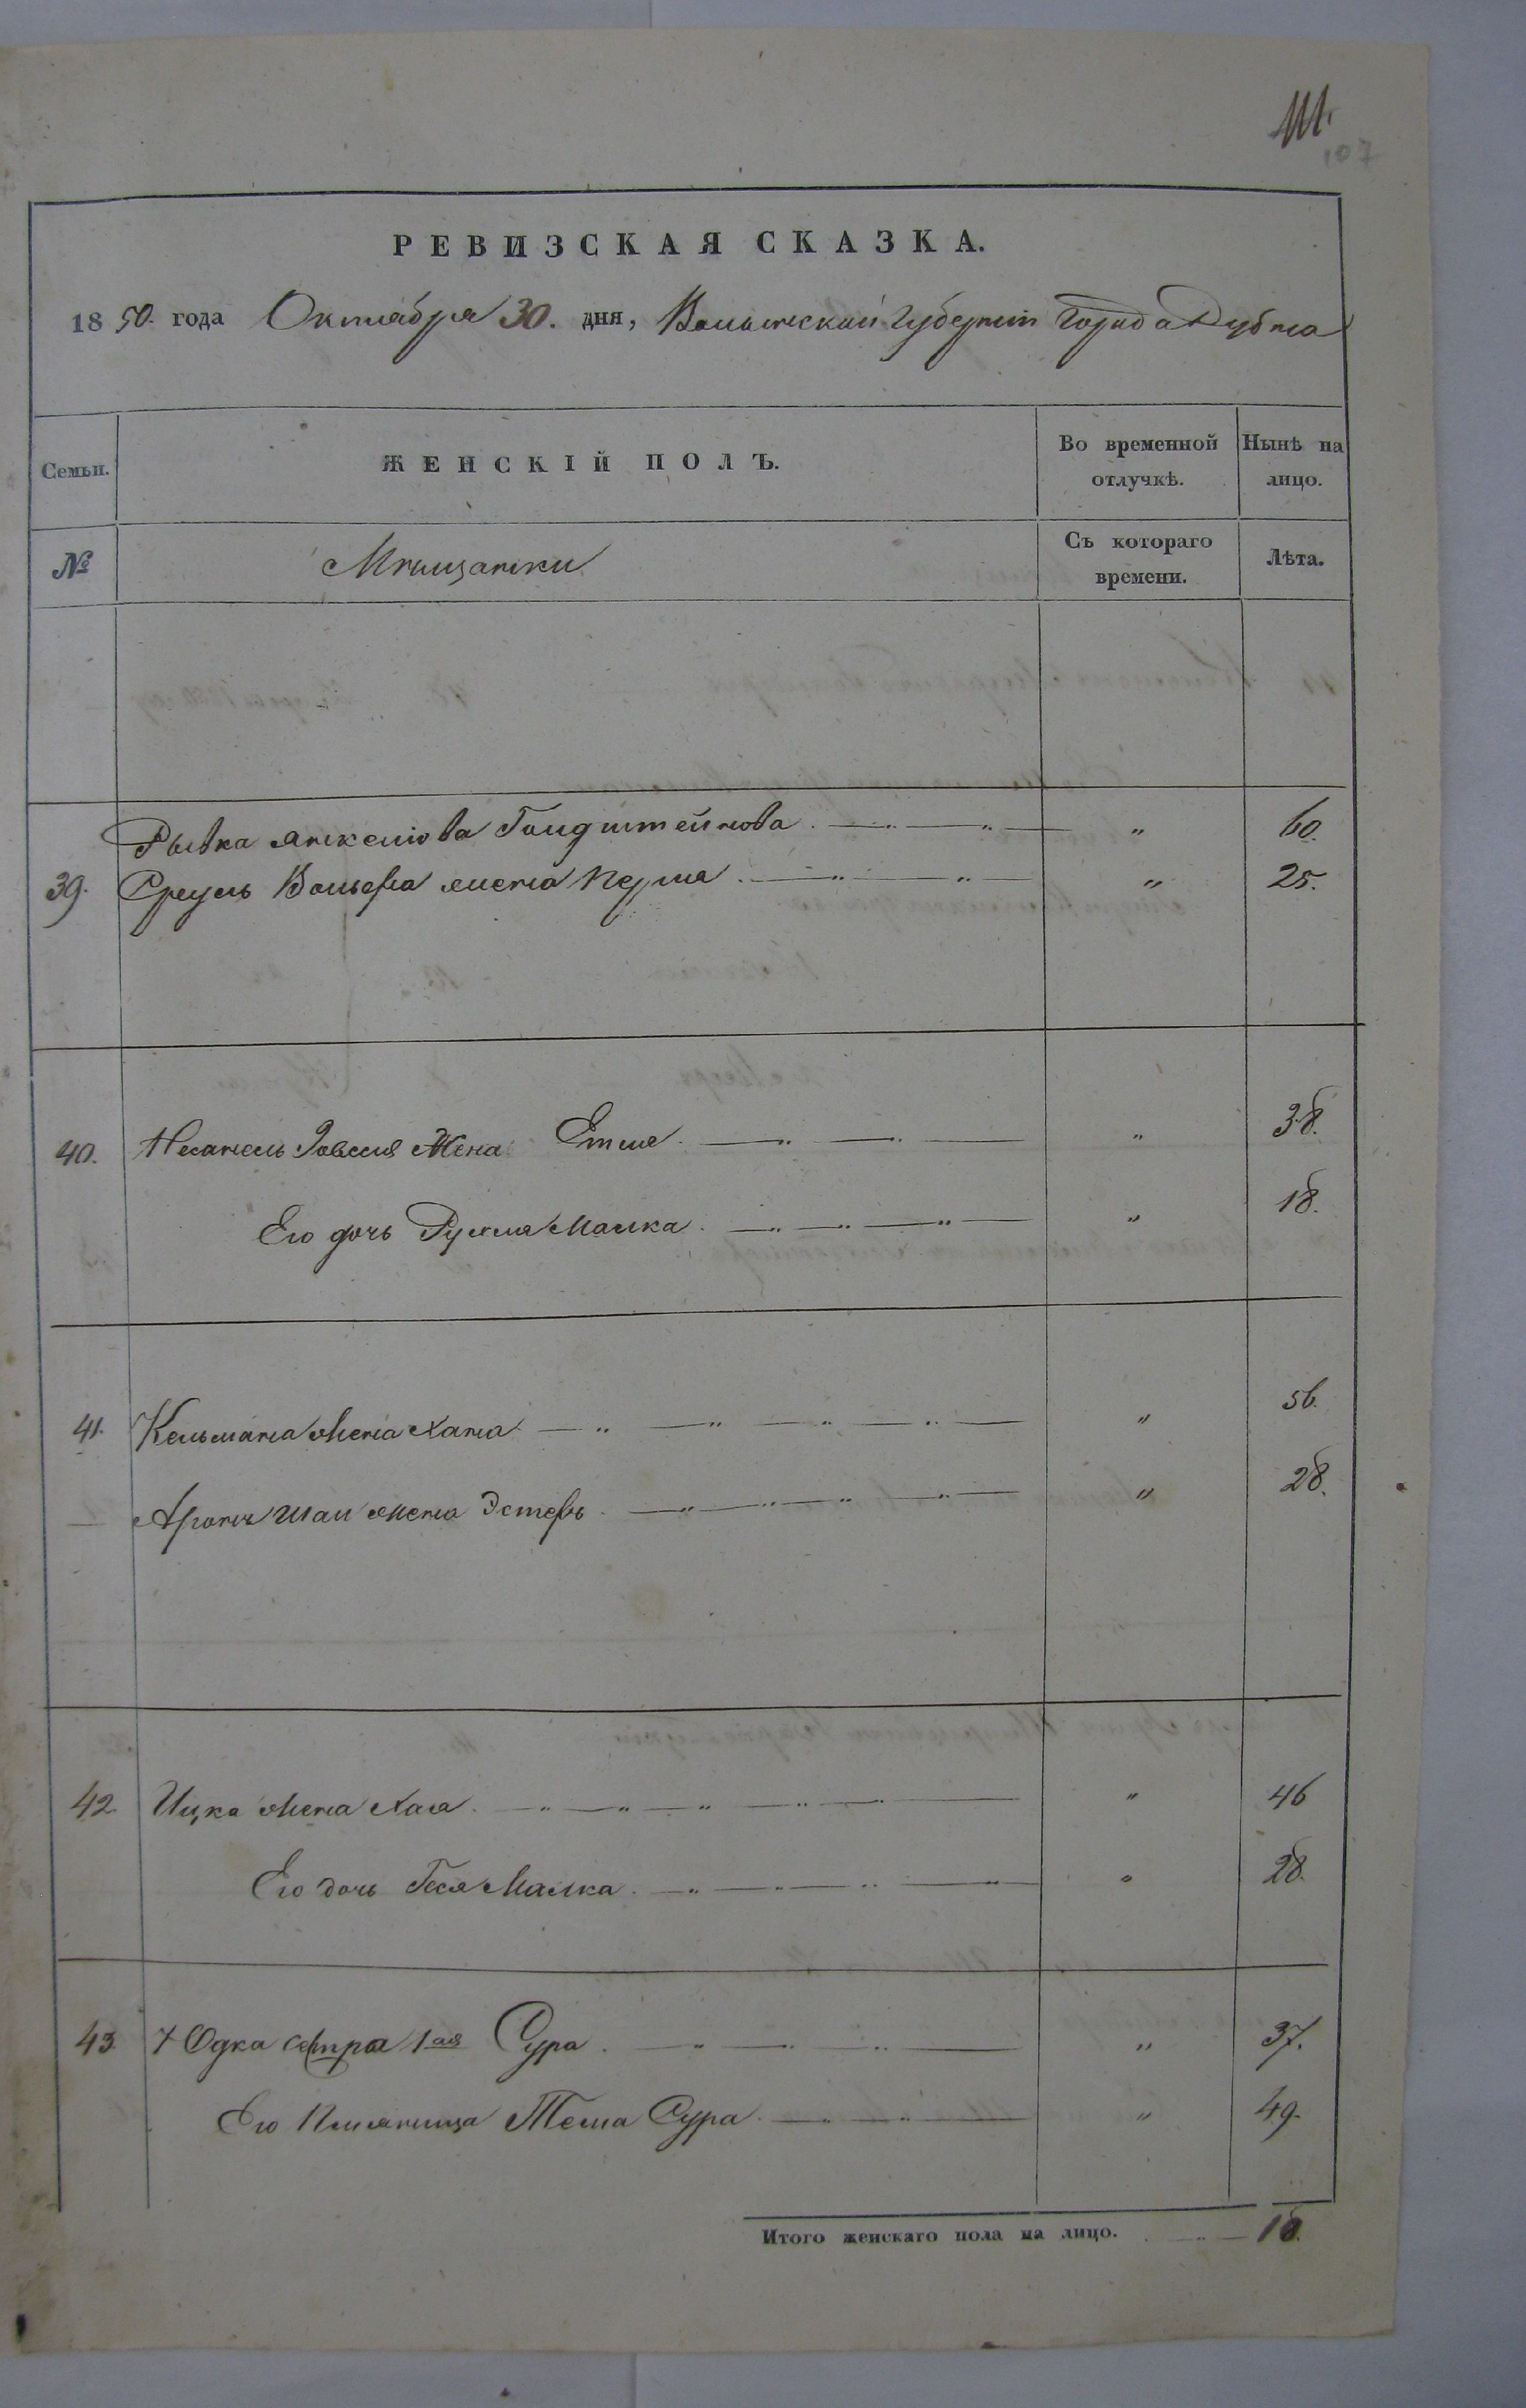 111.
107
РЕВИЗСКАЯ СКАЗКА.
1850. года Октября 30. дня, Волынской Губерніи Города Дубна
Семьи.
ЖЕНСКІЙ ПОЛЪ.
Во временной отлучкѣ.
Нынѣ на лицо.
№
Мѣщанки
Съ котораго времени.
Лѣта.
Рывка Янкелiова Гольдштейнова . — „ — „ — „ 60.
39. Сруль Вольфа жена Перля . — „ — „ — „ 25.
40. Жена Етля . — „ — „ — „ 38.
Его дочь Рухля Малка . — „ — „ — „ — „ 18.
41. Кельмана жена Хана — „ — „ — „ — „ — „ 56.
Аронъ жена Эстеръ . — „ — „ — „ — „ — „ 28.
42. Ицка жена Хая . — „ — „ — „ — „ — „ — „ 46
Его дочь Геся Малка . — „ — „ — „ — „ — „ 28.
43. Юдка сестра 1ая Сура . — „ — „ — „ — „ 37.
Его Племяница Сура . — „ — „ — „ 49.
Итого женскаго пола на лицо. . — „ — 10.